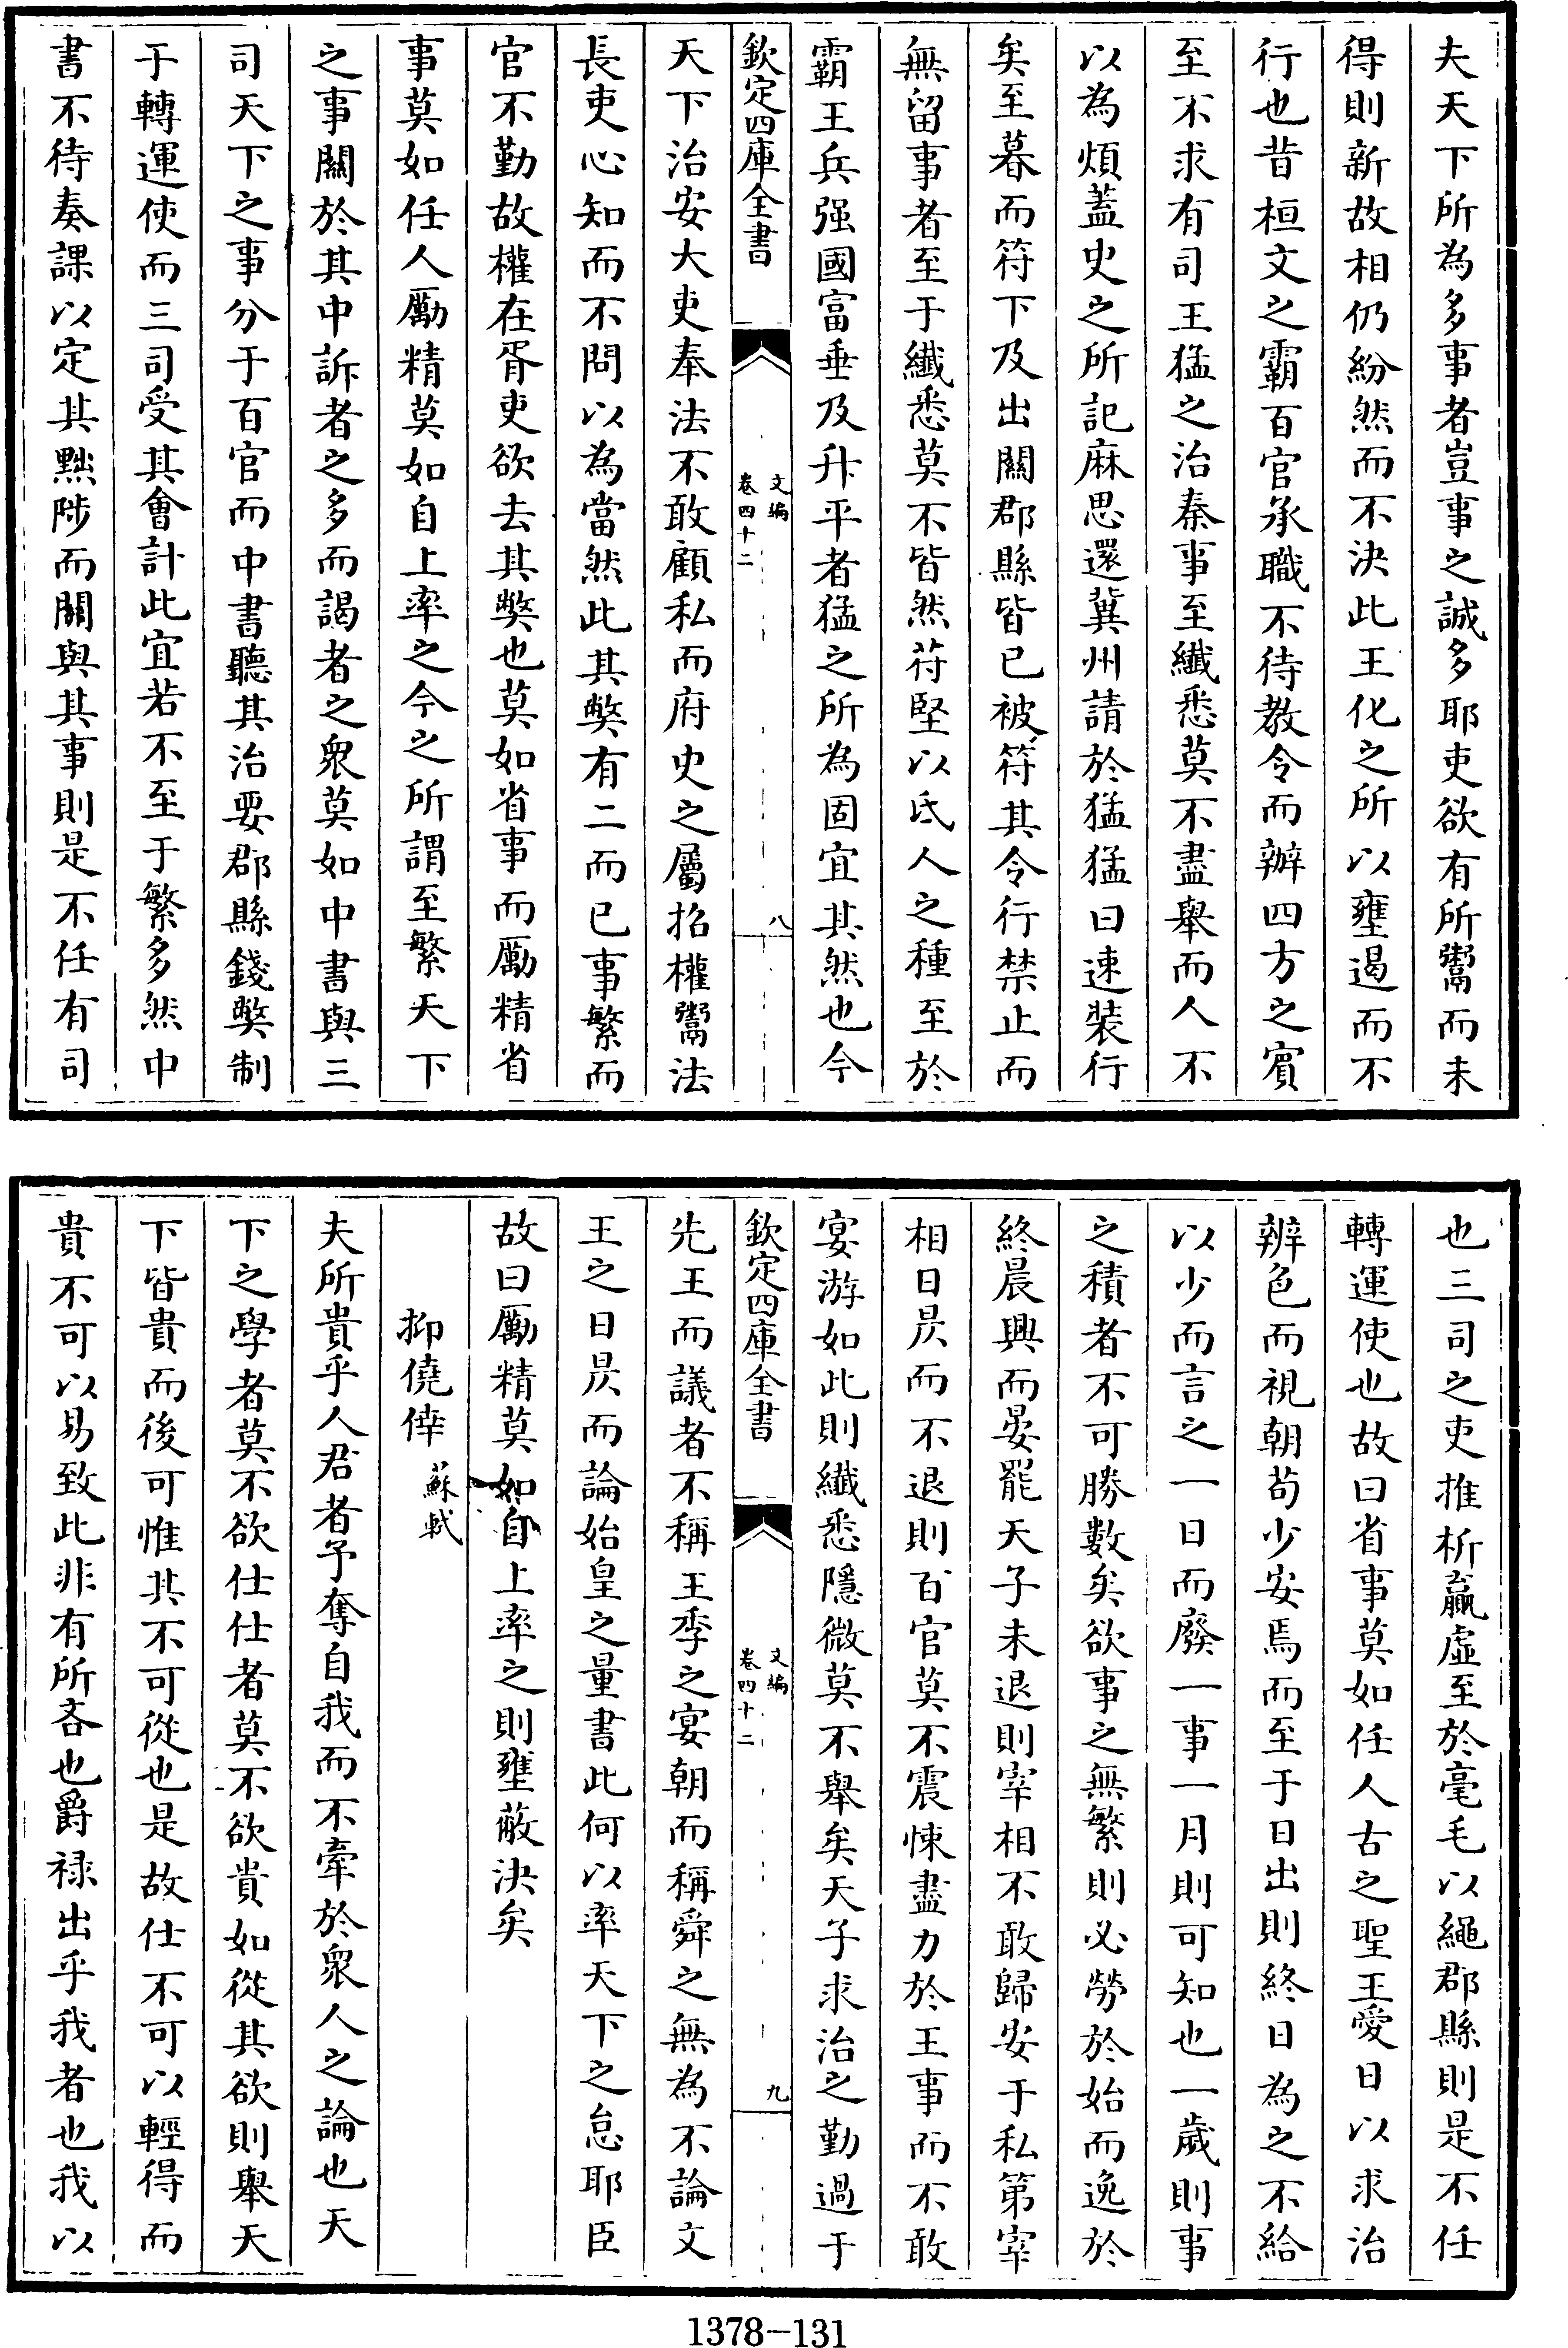 夫天下所為多事者豈事之誠多耶吏欲有所鬻而未
得則新故相仍紛然而不決此王化之所以壅遏而不
行也昔桓文之霸百官承職不待教令而辦四方之賓
至不求有司王猛之治秦事至纖悉莫不盡舉而人不
以為煩蓋史之所記麻思還冀州請於猛猛曰速裝行
矣至暮而符下及出關郡縣皆已被符其令行禁止而
無留事者至于纖悉莫不皆然苻堅以氐人之種至於
霸王兵强國富垂及升平者猛之所為固宜其然也今
欽定四庫全書
文編
卷四十二
八
天下治安大吏奉法不敢顧私而府史之屬招權鬻法
長吏心知而不問以為當然此其弊有二而已事繁而
官不勤故權在胥吏欲去其弊也莫如省事而厲精省
事莫如任人厲精莫如自上率之今之所謂至繁天下
之事關於其中訴者之多而謁者之衆莫如中書與三
司天下之事分于百官而中書聽其治要郡縣錢幣制
于轉運使而三司受其會計此宜若不至于繁多然中
書不待奏課以定其黜陟而關與其事則是不任有司
也三司之吏推析贏虛至於毫毛以繩郡縣則是不任
轉運使也故曰省事莫如任人古之聖王愛日以求治
辨色而視朝苟少安焉而至于日出則終日為之不給
以少而言之一日而廢一事一月則可知也一歲則事
之積者不可勝數矣欲事之無繁則必勞於始而逸於
終晨興而晏罷天子未退則宰相不敢歸安于私第宰
相日昃而不退則百官莫不震悚盡力於王事而不敢
宴游如此則纖悉隱微莫不舉矣天子求治之勤過于
欽定四庫全書
文編
卷四十二
九
先王而議者不稱王季之宴朝而稱舜之無為不論文
王之日昃而論始皇之量書此何以率天下之怠耶臣
故曰厲精莫如自上率之則壅蔽決矣
抑僥倖 蘇軾
夫所貴乎人君者予奪自我而不牽於衆人之論也天
下之學者莫不欲仕仕者莫不欲貴如從其欲則舉天
下皆貴而後可惟其不可從也是故仕不可以輕得而
貴不可以易致此非有所吝也爵祿出乎我者也我以
1378-131